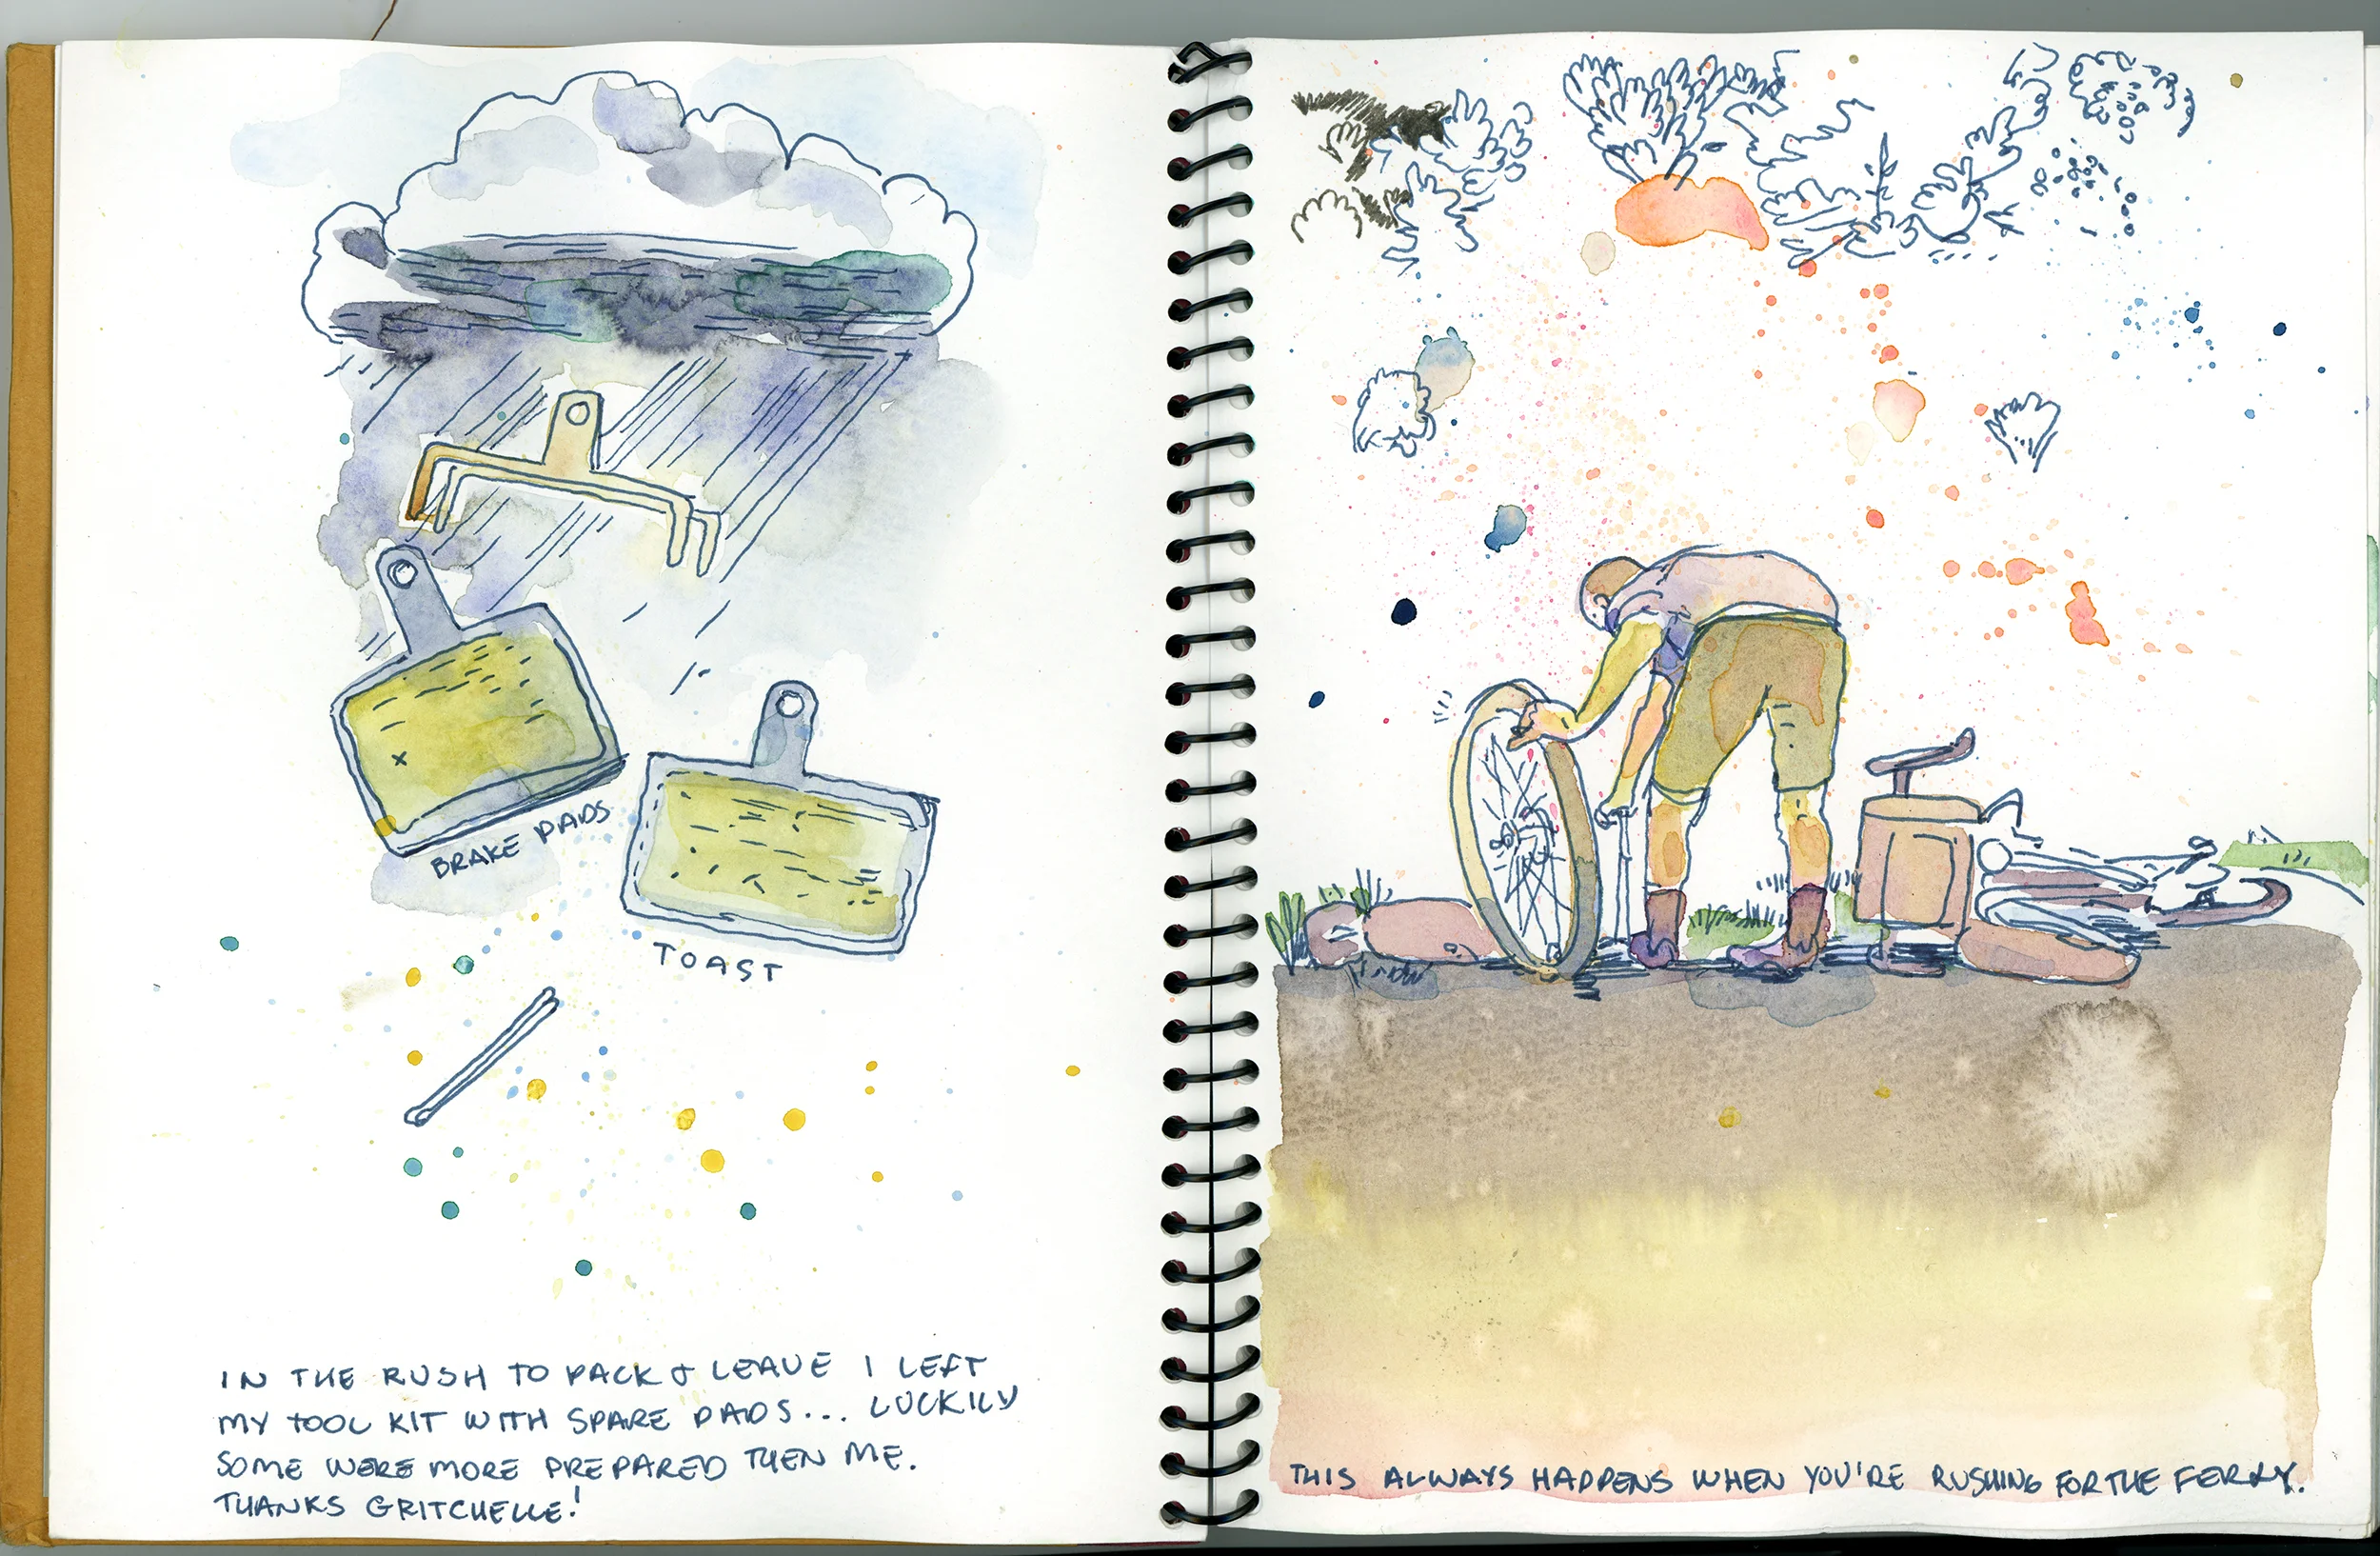 BRAKE PADS
TOAST
IN THE RUSH TO PACK & LEAVE I LEFT
MY TOOL KIT WITH SPARE PADS... LUCKILY
SOME WERE MORE PREPARED THEN ME.
THANKS GRITCHELLE!
THIS ALWAYS HAPPENS WHEN YOU'RE RUSHING FOR THE FERRY.